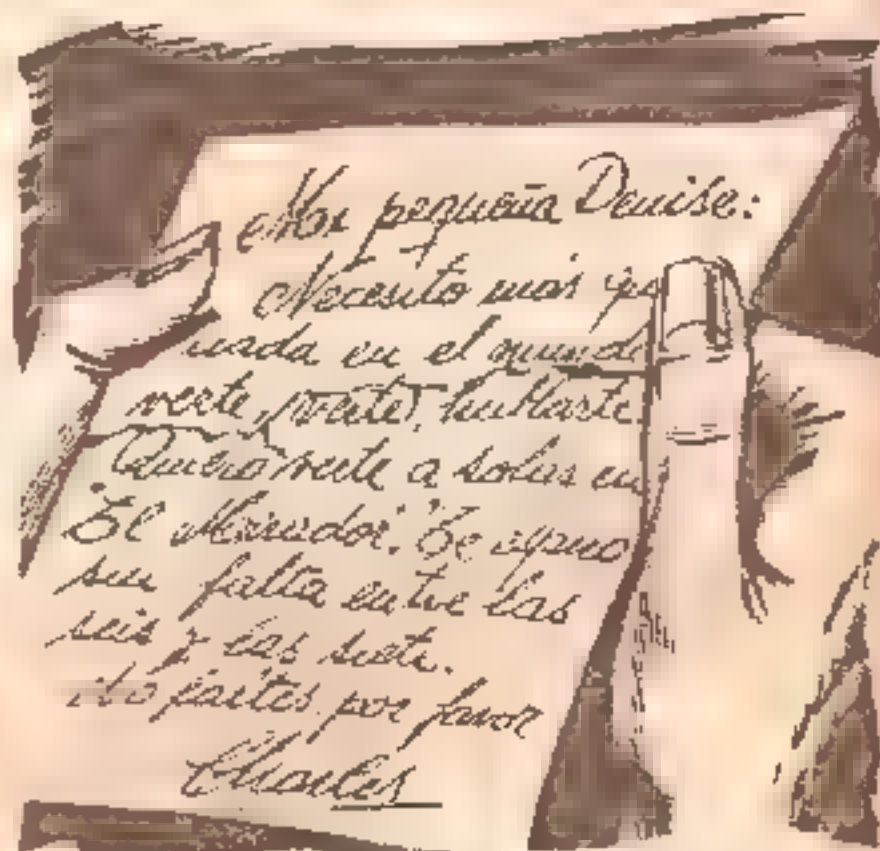 Mi pequeña Denise:
Necesito más que
nada en el mundo
verte, verte, hablarte.
Quiero verte a solas en
"El Mirador". Te espero
sin falta entre las
seis y las siete.
No faltes por favor
Charles